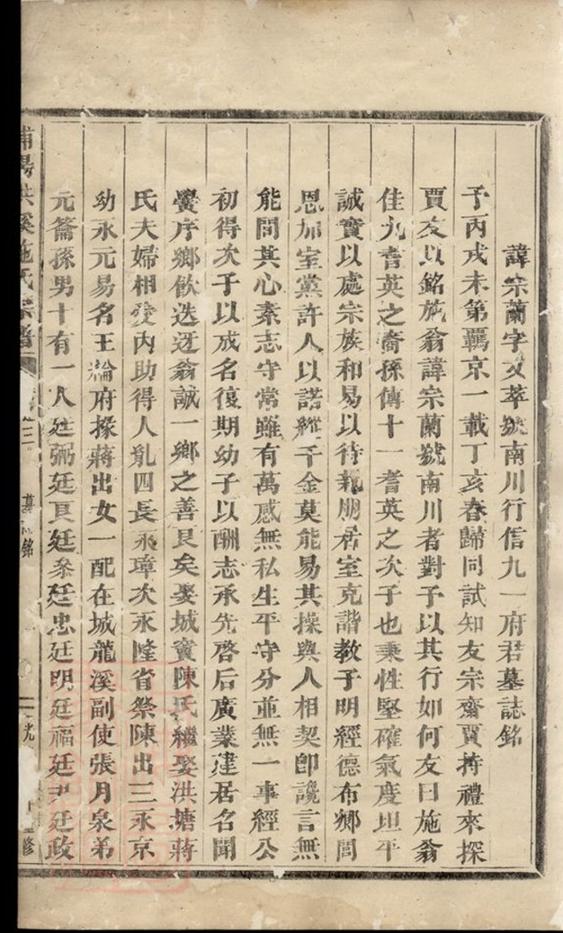 諱宗蘭字文萃號南川行信九一府君墓誌銘
予丙戌未第羈京一載丁亥春歸同試知友宗齋賈持禮來探
賈友以銘施翁諱宗蘭號南川者對予以其行如何友曰施翁
佳九耆英之裔孫傳十一耆英之次子也秉性堅確氣度坦平
誠實以處宗族和易以待親朋居室克諧教子明經德布鄉閭
恩加室黨許人以諾雖千金莫能易其操與人相契卽讒言無
能間其心素志守常雖有萬感無私生平守分並無一事經公
初得次子以成名復期幼子以酬志承先啓后廣業建居名聞
黌序鄉飲迭迓翁誠一鄉之善良矣娶城竇陳氏繼娶洪塘蔣
氏夫婦相愛內助得人亂四長永璋次永隆省祭陳出三永京
幼永元易名王瀹府掾蔣出女一配在城龍溪副使張月泉弟
元籥孫男十有一人廷弼廷頁廷參廷忠廷明廷福廷尹廷政
浦陽洪溪施氏宗譜 卷三 墓誌銘